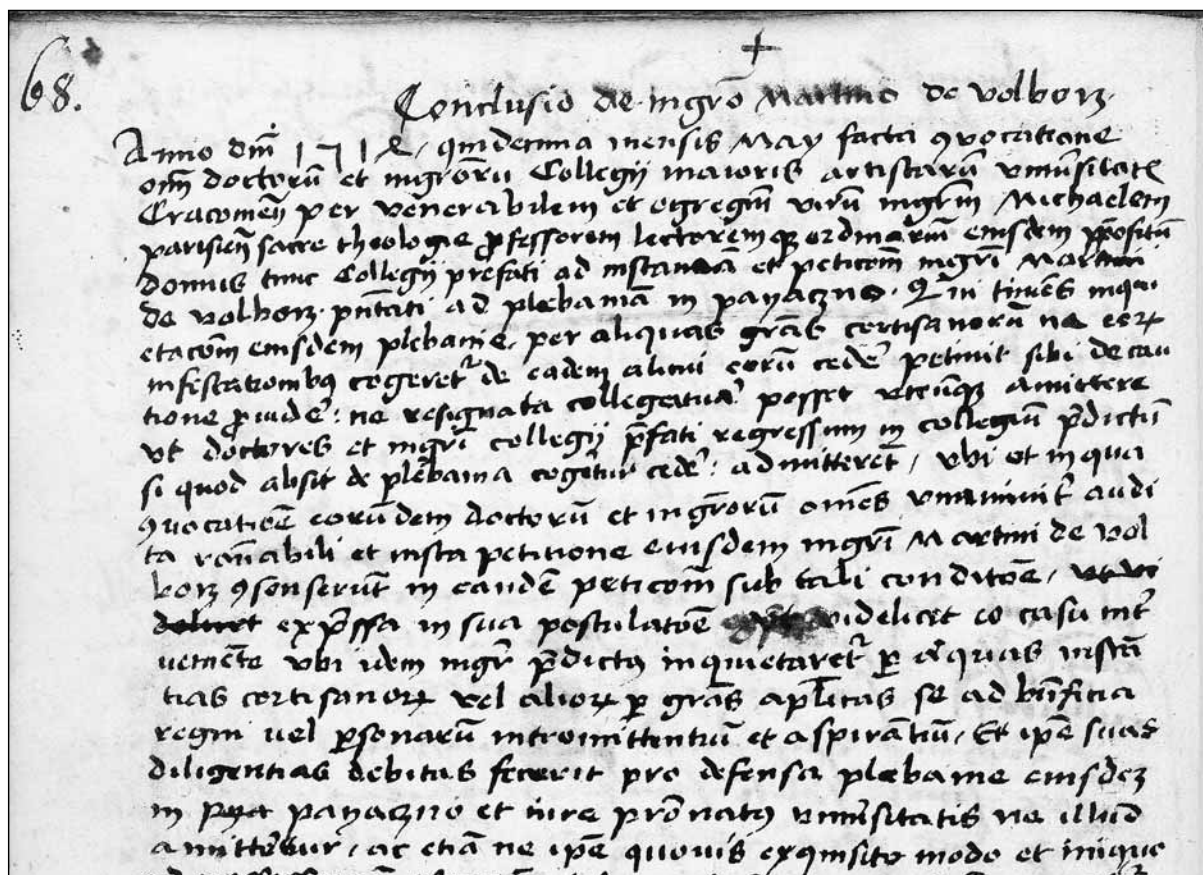 68.
+
Conclusio de mgrõ Martino de volborz.
Anno dm̃ 1512, quidecima mensis May facta ꝯvocatione
om̃ doctorũ et mgrõrũ Collegÿ maioris artistarũ vniũsitatꝭ
Cracouieñ per venerabilem et egregiũ virũ mgrm̃ Michaelem
parisieñ sacre theologie ꝓfessorem lectoremqꝫ ordinariũ eiusdem p̃positũ
domus tunc Collegÿ prefati ad instanciã et peticoẽm mgrĩ Martini
de volborz. pñtati ad plebaniã in payaczno. Qui timẽs inqui
etacoẽm eiusdem plebanie, per aliquas grãs cortisanorũ ne eorꝝ
infestationibꝰ cogeretᷣ de eadem alicui eorũ cedeᷣ petiuit sibi de cau
tione ꝓuideᷣ: ne resignata collegiatuᷣ posset vtcũqꝫ amittere
vt doctores et mgrĩ collegÿ p̃fati regressum in collegiũ p̃dictũ
si quod absit de plebania cogeᷣtur cedeᷣ: admitterẽt, vbi et in qua
ꝯvocatiõe eorũdem doctorũ et mgrõrũ omẽs vnanimiᷣt audi
ta rãnabili et iusta petitione eiusdem mgrĩ Martini de vol
borz ꝯsenserũt in eandẽ peticoẽm sub tali conditõe, vt vi
delicet exp̃ssa in sua postulatõe vt videlicet eo casu int̃
ueniẽte vbi idem mgr̃ p̃dictꝰ inquietaretᷣ ꝑ aliquas instã
tias cortisanorꝝ vel aliorꝝ ꝑ grãs aplĩcas se ad bñficia
regni uel ꝑsonarũ intromittentiũ et aspirãtiũ, Et ipẽ suas
diligentias debitas fecerit pro defensa plebanie eiusdeꝫ
in payaczno et iure prõnatꝰ vniũsitatis ne illud
amitteretur, ac etiã ne ipẽ quouis exquisito modo et inique